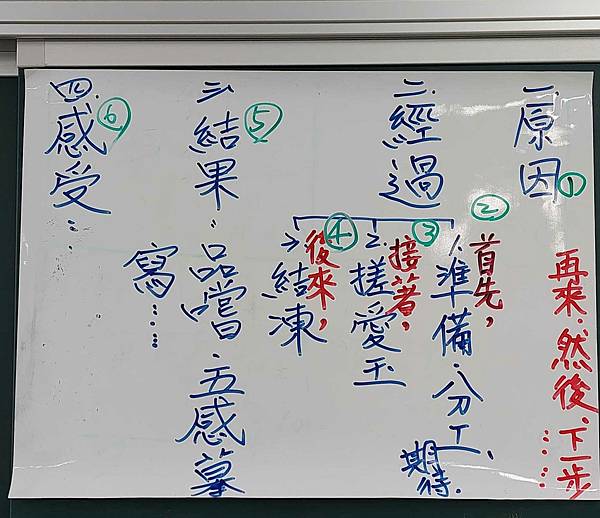 一.原因①
再來.然後、下一步……
二.經過
②首先,
1.準備.分工、
期待.
③接著,
2.搓愛玉
④後來,
3.結凍
三、結果:⑤
品嚐.五感摹
寫……
四.感受…⑥